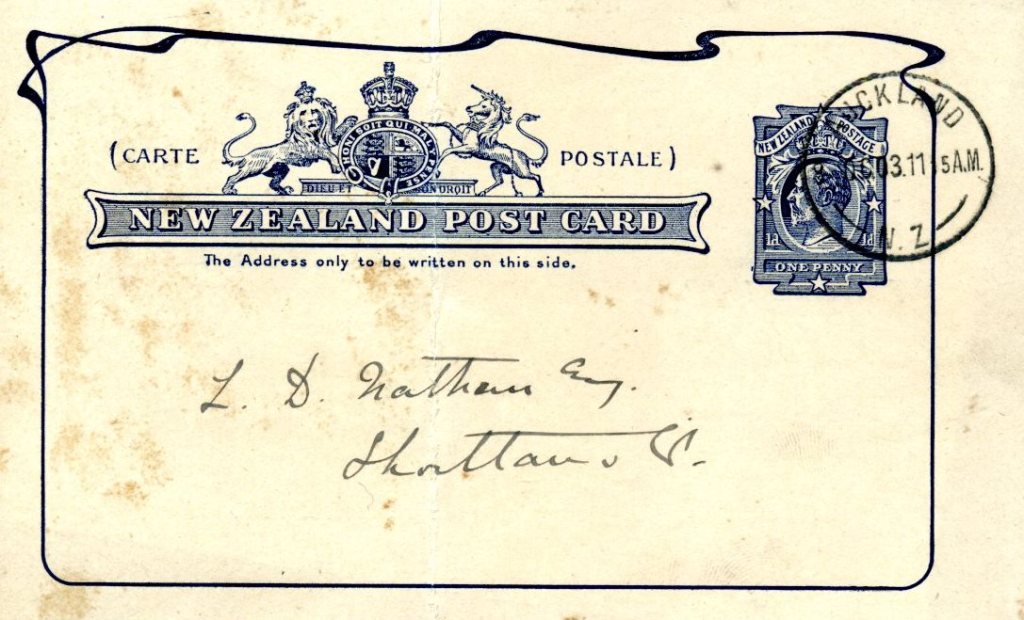 (CARTE POSTALE)
HONI SOIT QUI MAL Y PENSE
DIEU ET MON DROIT
NEW ZEALAND POST CARD
The Address only to be written on this side.
NEW ZEALAND POSTAGE
1d 1d
ONE PENNY
AUCKLAND
03.11 15 A.M.
N.Z
L. D. Nathan Esq.
Shortland St.